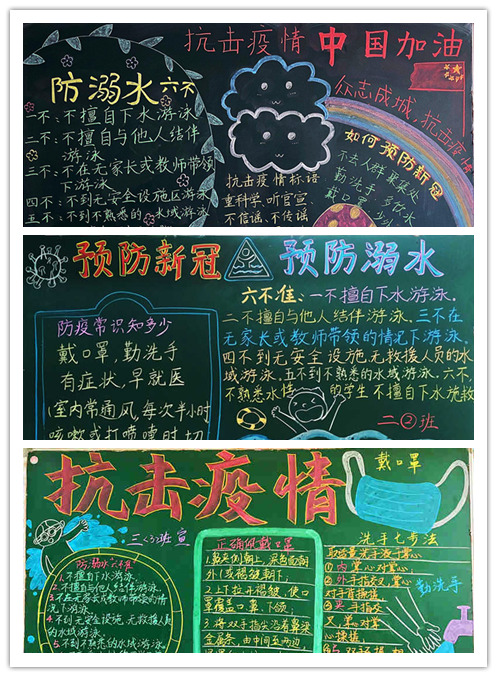 抗击疫情 中国加油
防溺水六不
一不:不擅自下水游泳
二不:不擅自与他人结伴
游泳
三不:不在无家长或教师带领
下游泳
四不:不到无安全设施区游泳
五不:不到不熟悉的水域游泳
众志成城,抗击疫情
抗击疫情标语
重科学、听官宣、
不信谣、不传谣
如何预防新冠
不去人群聚集处
勤洗手、多饮水
戴口罩、少
预防新冠
预防溺水
防疫常识知多少
戴口罩,勤洗手
有症状,早就医
室内常通风,每次半小时
咳嗽或打喷嚏时切
六不准:一不擅自下水游泳.
二不擅自与他人结伴游泳.三不在
无家长或教师带领的情况下游泳.
四不到无安全设施无救援人员的水
域游泳.五不到不熟悉的水域游泳.六不,
不熟悉水性的学生不擅自下水施救
二②班
抗击疫情
戴口罩
三<3>班宣
防溺水六不准
1.不擅自下水游泳.
2.不擅自与他人结伴游泳.
3.不在无家长或教师带领的情
况下游泳.
4.不到无安全设施、无救援人员
的水域游泳.
5.不到不熟悉的水域游泳.
正确佩戴口罩
1.鼻夹侧朝上,深色面朝
外(或褶皱朝下)
2.上下拉开褶皱,使口
罩覆盖口、鼻、下颌;
3.将双手指尖沿着鼻梁
金属条,由中间至两边,
洗手七步法
取适量洗手液于掌心
①内 掌心对掌心
②外 手指交叉,掌心
对手背揉搓
③夹 手指交
叉,掌心对掌
心揉搓,
勤洗手